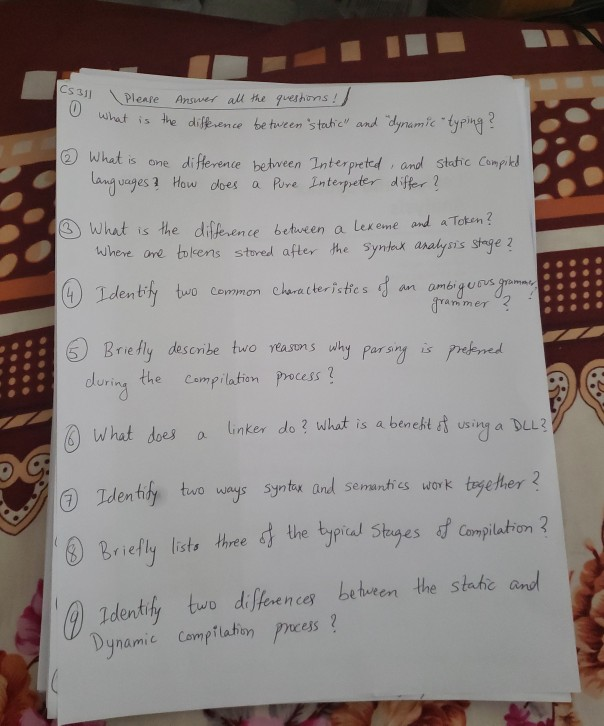 CS311 Please Answer all the questions!
① What is the difference between "static" and "dynamic" typing?
② What is one difference between Interpreted, and static Compiled
languages? How does a Pure Interpreter differ?
③ What is the difference between a Lexeme and a Token?
Where are tokens stored after the syntax analysis stage?
④ Identify two common characteristics of an ambiguous grammer,
grammer?
⑤ Briefly describe two reasons why parsing is preferred
during the compilation process?
⑥ What does a linker do? What is a benefit of using a DLL?
⑦ Identify two ways syntax and semantics work together?
⑧ Briefly lists three of the typical Stages of Compilation?
⑨ Identify two differences between the static and
Dynamic compilation process?